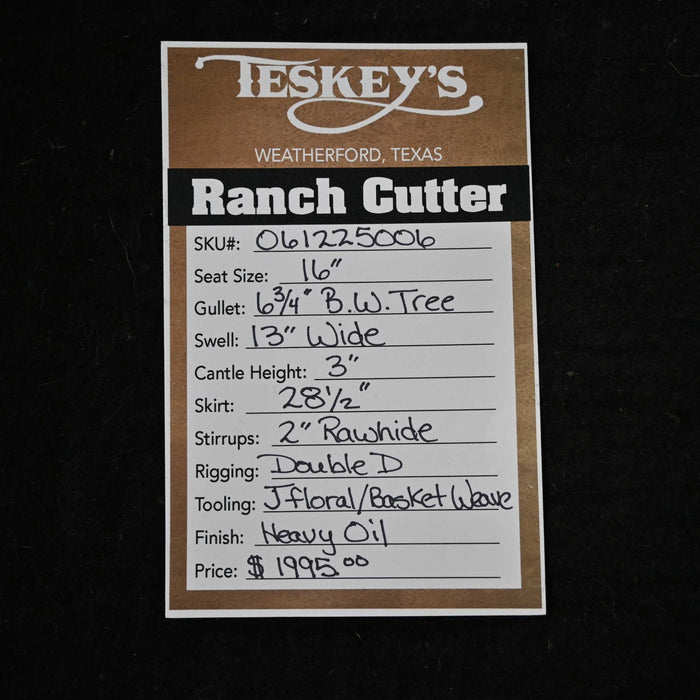 TESKEY'S
WEATHERFORD, TEXAS
Ranch Cutter
SKU#: 061225006
Seat Size: 16"
Gullet: 6 3/4" B.W. Tree
Swell: 13" Wide
Cantle Height: 3"
Skirt: 28 1/2"
Stirrups: 2" Rawhide
Rigging: Double D
Tooling: J floral/Basket Weave
Finish: Heavy Oil
Price: $ 1995.00